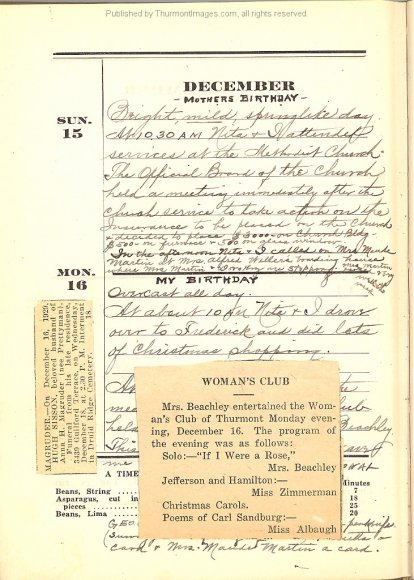 Published by ThurmontImages.com, all rights reserved.
DECEMBER
- MOTHERS BIRTHDAY -
SUN.
15
Bright, mild, springlike day
At 10.30 AM Nita & I attended
services at the Methodist Church.
The Official Board of the Church
held a meeting immediately after the
church service to take action on the
Insurance to be placed on the Church
decided to place $ 3000 on Church Bldg.
$500 on furnace & 500 on glass windows
In the afternoon Nita & I called on Mrs Maude
Martin at Mrs. Weller's boarding house
where Mrs Martin & are stopping. Mrs Martin
MON.
16
MY BIRTHDAY
Overcast all day.
At about 10 AM Nita & I drove
over to Frederick and did lots
of Christmas shopping.
MAGRUDER.—On December 16, 1929,
HUGH SISSON, beloved husband of
Anna H. Magruder (nee Prettyman).
Funeral from his late residence,
3439 Guilford Terrace, on Wednesday,
December 18, at 2.30 P. M. Interment
in Druid Ridge Cemetery. 18
WOMAN'S CLUB
Mrs. Beachley entertained the Wom-
an's Club of Thurmont Monday even-
ing, December 16. The program of
the evening was as follows:
Solo:—"If I Were a Rose,"
Mrs. Beachley
Jefferson and Hamilton:—
Miss Zimmerman
Christmas Carols.
Poems of Carl Sandburg:—
Miss Albaugh
held
Beachley
This
me
A TIME
Minutes
Beans, String
7
Asparagus, cut in
pieces
18
25
Beans, Lima
20
card & Mrs. Maude Martin a card.